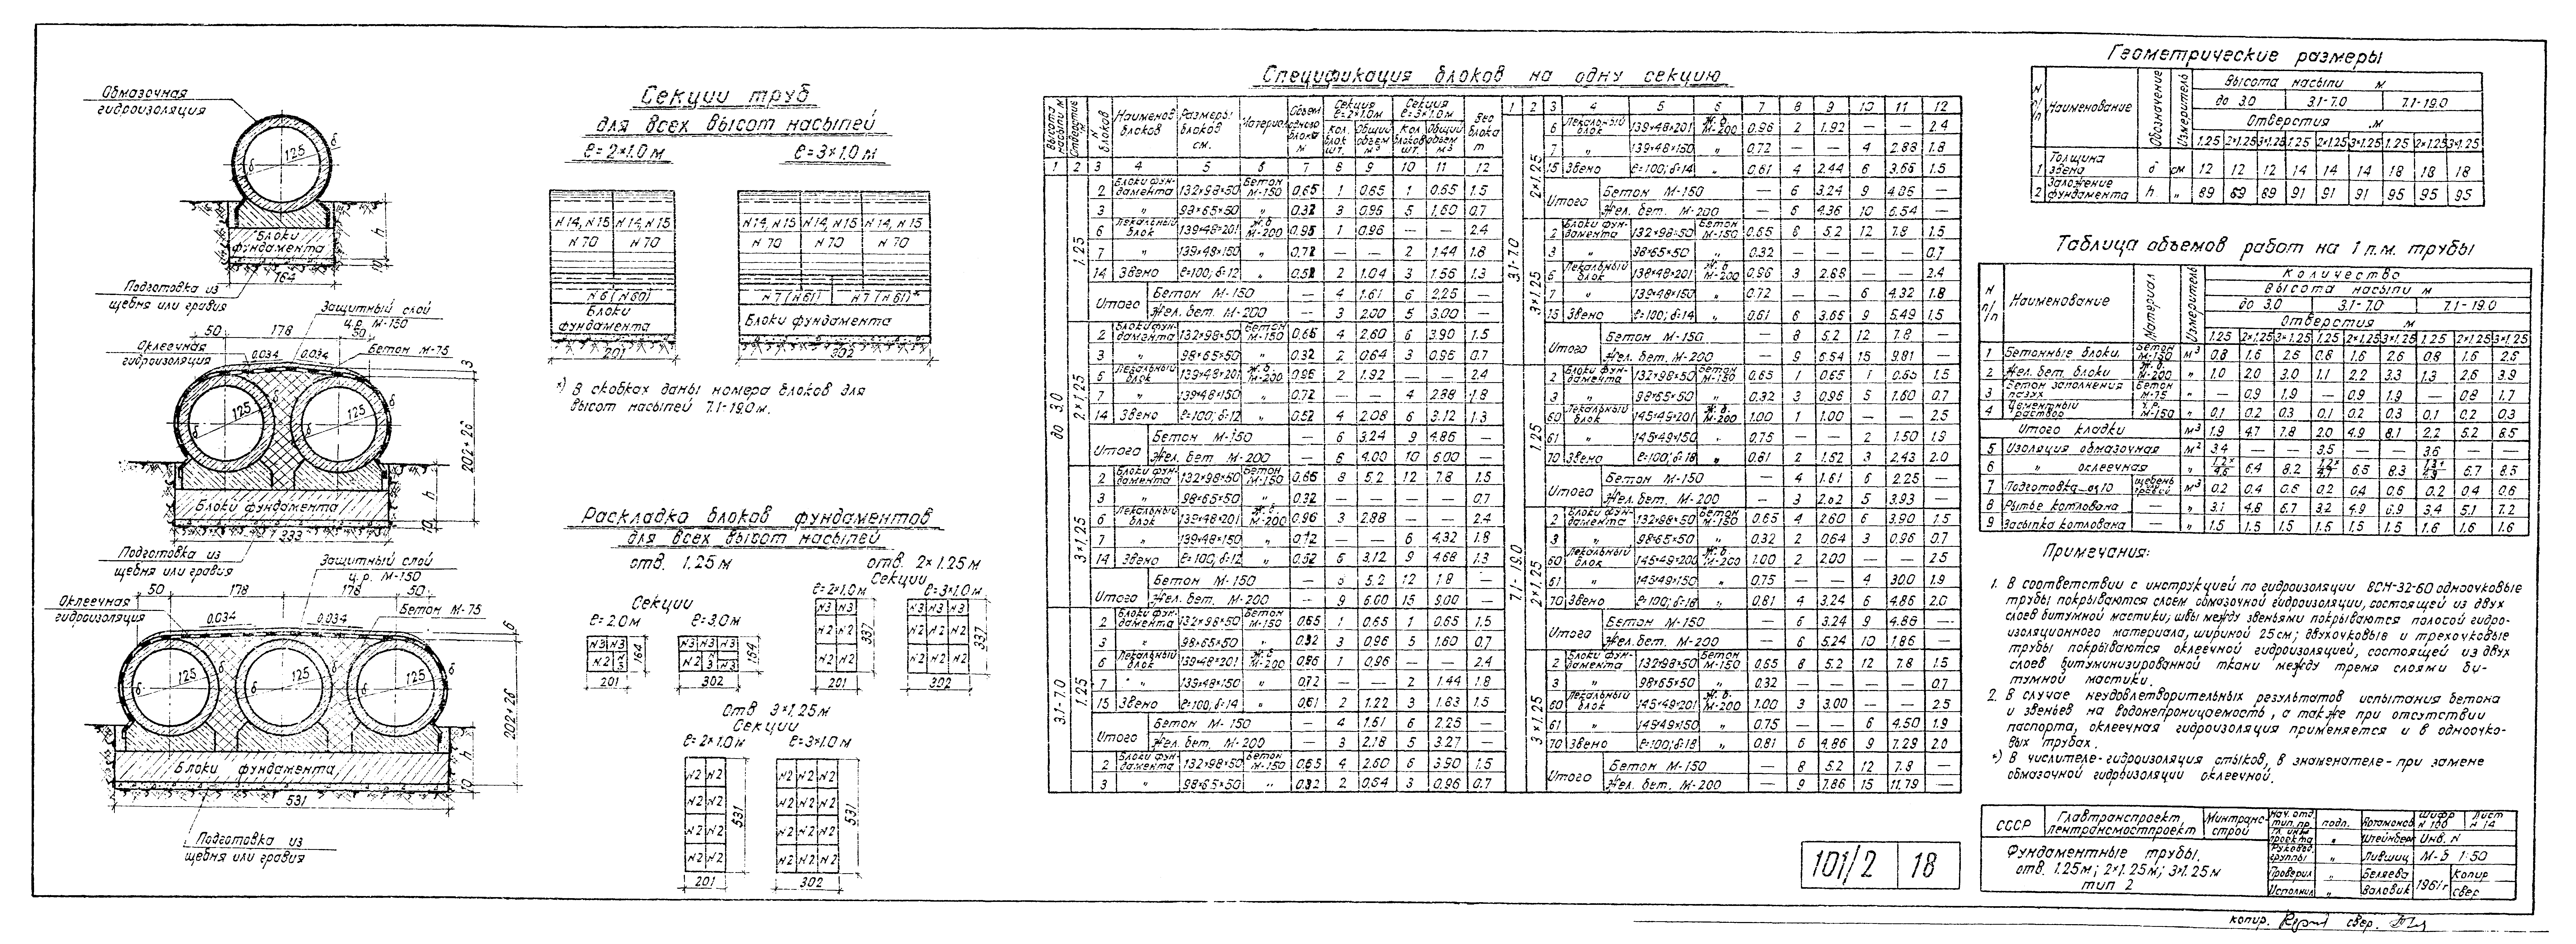 Обмазочная
гидроизоляция
125
δ
δ
Блоки
фундамента
h
10
164
Подготовка из
щебня или гравия
Защитный слой
ц.р. М-150
50 178 50
Оклеечная
гидроизоляция
0.034 0.034
Бетон М-75
3
125 125
δ δ
202+2δ
h
10
Блоки фундамента
333
Подготовка из
щебня или гравия
Защитный слой
ц.р. М-150
50 178 178 50
Оклеечная
гидроизоляция
0.034 0.034
Бетон М-75
6
125 125 125
202+2δ
h
10
Блоки фундамента
531
Подготовка из
щебня или гравия
Секции труб
для всех высот насыпей
ℓ=2×1.0м ℓ=3×1.0м
N14, N15 N14, N15 N14, N15 N14, N15 N14, N15
N70 N70 N70 N70 N70
N6 (N60) N7 (N61) N7 (N61)*
Блоки
фундамента
Блоки фундамента
201 302
*) В скобках даны номера блоков для
высот насыпей 7.1-19.0м.
Раскладка блоков фундаментов
для всех высот насыпей
отв. 1.25м отв. 2×1.25м
Секции
ℓ=2×1.0м ℓ=3×1.0м
Секции
ℓ=2.0м ℓ=3.0м
N3 N3 N3 N3 N3
N2 N3 N2 N3 N3
164 164
201 302
N3 N3 N3 N3 N3
N2 N2 N2 N2 N2
N2 N2 N2 N2 N2
337 337
201 302
отв 3×1.25м
Секции
ℓ=2×1.0м ℓ=3×1.0м
N2 N2 N2 N2 N2
N2 N2 N2 N2 N2
N2 N2 N2 N2 N2
N2 N2 N2 N2 N2
531 531
201 302
Спецификация блоков на одну секцию
Высота насыпи м
Отверстие м
N блоков
Наименов блоков
Размеры блоков см.
Материал
Объем одного блока м³
Секция ℓ=2×1.0м
Кол. блок шт.
Общий объем м³
Секция ℓ=3×1.0м
Кол блоков шт.
Общий объем м³
Вес блока т
1 2 3 4 5 6 7 8 9 10 11 12
до 3.0
1.25
2 Блоки фундамента 132×98×50 Бетон М-150 0.65 1 0.65 1 0.65 1.5
3 " 98×65×50 " 0.32 3 0.96 5 1.60 0.7
6 Лекальный блок 139×48×201 Ж.б. М-200 0.96 1 0.96 — — 2.4
7 " 139×48×150 " 0.72 — — 2 1.44 1.8
14 Звено ℓ=100; δ=12 " 0.52 2 1.04 3 1.56 1.3
Итого Бетон М-150 — 4 1.61 6 2.25 —
Жел. бет. М-200 — 3 2.00 5 3.00 —
2×1.25
2 Блоки фундамента 132×98×50 Бетон М-150 0.65 4 2.60 6 3.90 1.5
3 " 98×65×50 " 0.32 2 0.64 3 0.96 0.7
6 Лекальный блок 139×48×201 Ж.б. М-200 0.96 2 1.92 — — 2.4
7 " 139×48×150 " 0.72 — — 4 2.88 1.8
14 Звено ℓ=100; δ=12 " 0.52 4 2.08 6 3.12 1.3
Итого Бетон М-150 — 6 3.24 9 4.86 —
Жел. бет. М-200 — 6 4.00 10 6.00 —
3×1.25
2 Блоки фундамента 132×98×50 Бетон М-150 0.65 8 5.2 12 7.8 1.5
3 " 98×65×50 " 0.32 — — — — 0.7
6 Лекальный блок 139×48×201 Ж.б. М-200 0.96 3 2.88 — — 2.4
7 " 139×48×150 " 0.72 — — 6 4.32 1.8
14 Звено ℓ=100; δ=12 " 0.52 6 3.12 9 4.68 1.3
Итого Бетон М-150 — 5.2 12 —
Жел. бет. М-200 — 9 6.00 15 9.00 —
3.1-7.0
1.25
2 Блоки фундамента 132×98×50 Бетон М-150 0.65 1 0.65 1 0.65 1.5
3 " 98×65×50 " 0.32 3 0.96 5 1.60 0.7
6 Лекальный блок 139×48×201 Ж.б. М-200 0.96 1 0.96 — — 2.4
7 " 139×48×150 " 0.72 — — 2 1.44 1.8
15 Звено ℓ=100; δ=14 " 0.61 2 1.22 3 1.83 1.5
Итого Бетон М-150 — 4 1.61 6 2.25 —
Жел. бет. М-200 — 3 2.18 5 3.27 —
2 Блоки фундамента 132×98×50 Бетон М-150 0.65 4 2.60 6 3.90 1.5
3 " 98×65×50 " 0.32 2 0.64 3 0.96 0.7
1 2 3 4 5 6 7 8 9 10 11 12
3.1-7.0
2×1.25
6 Лекальный блок 139×48×201 Ж.б. М-200 0.96 2 1.92 — — 2.4
7 " 139×48×150 " 0.72 — — 4 2.88 1.8
15 Звено ℓ=100; δ=14 " 0.61 4 2.44 6 3.66 1.5
Итого Бетон М-150 — 6 3.24 9 4.86 —
Жел. бет. М-200 — 6 4.36 10 6.54 —
3×1.25
2 Блоки фундамента 132×98×50 Бетон М-150 0.65 8 5.2 12 7.8 1.5
3 " 98×65×50 " 0.32 — — — — 0.7
6 Лекальный блок 138×48×201 Ж.б. М-200 0.96 3 2.88 — — 2.4
7 " 139×48×150 " 0.72 — — 6 4.32 1.8
15 Звено ℓ=100; δ=14 " 0.61 6 3.66 9 5.49 1.5
Итого Бетон М-150 — 8 5.2 12 7.8 —
Жел. бет. М-200 — 9 6.54 15 9.81 —
7.1-19.0
1.25
2 Блоки фундамента 132×98×50 Бетон М-150 0.65 1 0.65 1 0.65 1.5
3 " 98×65×50 " 0.32 3 0.96 5 1.60 0.7
60 Лекальный блок 145×49×201 Ж.б. М-200 1.00 1 1.00 — — 2.5
61 " 145×49×150 " 0.75 — — 2 1.50 1.9
70 Звено ℓ=100; δ=18 " 0.81 2 1.62 3 2.43 2.0
Итого Бетон М-150 — 4 1.61 6 2.25 —
Жел. бет. М-200 — 3 2.62 5 3.93 —
2×1.25
2 Блоки фундамента 132×98×50 Бетон М-150 0.65 4 2.60 6 3.90 1.5
3 " 98×65×50 " 0.32 2 0.64 3 0.96 0.7
60 Лекальный блок 145×49×200 Ж.б. М-200 1.00 2 2.00 — — 2.5
61 " 145×49×150 " 0.75 — — 4 3.00 1.9
70 Звено ℓ=100; δ=18 " 0.81 4 3.24 6 4.86 2.0
Итого Бетон М-150 — 6 3.24 9 4.86 —
Жел. бет. М-200 — 6 5.24 10 7.86 —
3×1.25
2 Блоки фундамента 132×98×50 Бетон М-150 0.65 8 5.2 12 7.8 1.5
3 " 98×65×50 " 0.32 — — — — 0.7
60 Лекальный блок 145×49×201 Ж.б. М-200 1.00 3 3.00 — — 2.5
61 " 145×49×150 " 0.75 — — 6 4.50 1.9
70 Звено ℓ=100; δ=18 " 0.81 6 4.86 9 7.29 2.0
Итого Бетон М-150 — 8 5.2 12 7.8 —
Жел. бет. М-200 — 9 7.86 15 11.79 —
Геометрические размеры
N п/п Наименование Обозначение Измеритель Высота насыпи м
до 3.0 3.1-7.0 7.1-19.0
Отверстия м
1.25 2×1.25 3×1.25 1.25 2×1.25 3×1.25 1.25 2×1.25 3×1.25
1 Толщина звена δ см 12 12 12 14 14 14 18 18 18
2 Заложение фундамента h " 89 89 89 91 91 91 95 95 95
Таблица объемов работ на 1 п.м. трубы
N п/п Наименование Материал Измеритель Количество
Высота насыпи м
до 3.0 3.1-7.0 7.1-19.0
Отверстия м
1.25 2×1.25 3×1.25 1.25 2×1.25 3×1.25 1.25 2×1.25 3×1.25
1 Бетонные блоки. Бетон М-150 м³ 0.8 1.6 2.6 0.8 1.6 2.6 0.8 1.6 2.6
2 Жел. бет. блоки Ж.б. М-200 " 1.0 2.0 3.0 1.1 2.2 3.3 1.3 2.6 3.9
3 Бетон заполнения пазух Бетон М-75 " — 0.9 1.9 — 0.9 1.9 — 0.8 1.7
4 Цементный раствор ц.р. М-150 " 0.1 0.2 0.3 0.1 0.2 0.3 0.1 0.2 0.3
Итого кладки м³ 1.9 4.7 7.8 2.0 4.9 8.1 2.2 5.2 8.5
5 Изоляция обмазочная — м² 3.4 — — 3.5 — — 3.6 — —
6 " оклеечная — " 1.2*/4.6 6.4 8.2 1.2*/4.7 6.5 8.3 1.3*/4.9 6.7 8.5
7 Подготовка 0.10 щебень гравий м³ 0.2 0.4 0.6 0.2 0.4 0.6 0.2 0.4 0.6
8 Рытье котлована — " 3.1 4.8 6.7 3.2 4.9 6.9 3.4 5.1 7.2
9 Засыпка котлована — " 1.5 1.5 1.5 1.5 1.5 1.5 1.6 1.6 1.6
Примечания:
1. В соответствии с инструкцией по гидроизоляции ВСН-32-60 одноочковые
трубы покрываются слоем обмазочной гидроизоляции, состоящей из двух
слоев битумной мастики; швы между звеньями покрываются полосой гидро-
изоляционного материала, шириной 25см; двухочковые и трехочковые
трубы покрываются оклеечной гидроизоляцией, состоящей из двух
слоев битуминизированной ткани между тремя слоями би-
тумной мастики.
2. В случае неудовлетворительных результатов испытания бетона
и звеньев на водонепроницаемость, а также при отсутствии
паспорта, оклеечная гидроизоляция применяется и в одноочко-
вых трубах.
*) В числителе-гидроизоляция стыков, в знаменателе-при замене
обмазочной гидроизоляции оклеечной.
101/2 18
СССР Главтранспроект, Лентрансмостпроект Минтрансстрой
Нач. отд. тип. пр. подп. Артамонов Шифр N 100 Лист N 14
Гл. инж. проекта " Штейнберг Инв. N
Руковод. группы " Лившиц М-б 1:50
Проверил " Беляева 1961г Копир
Исполнил " Валовик свер.
Фундаментные трубы.
отв. 1.25м; 2×1.25м; 3×1.25м
тип 2
копир. свер.